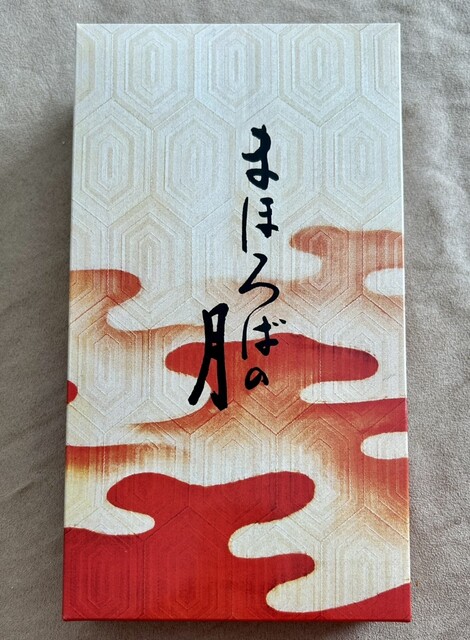 まほろばの
月